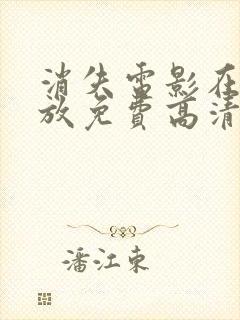 消失雷影在
放免费高清
潘江东